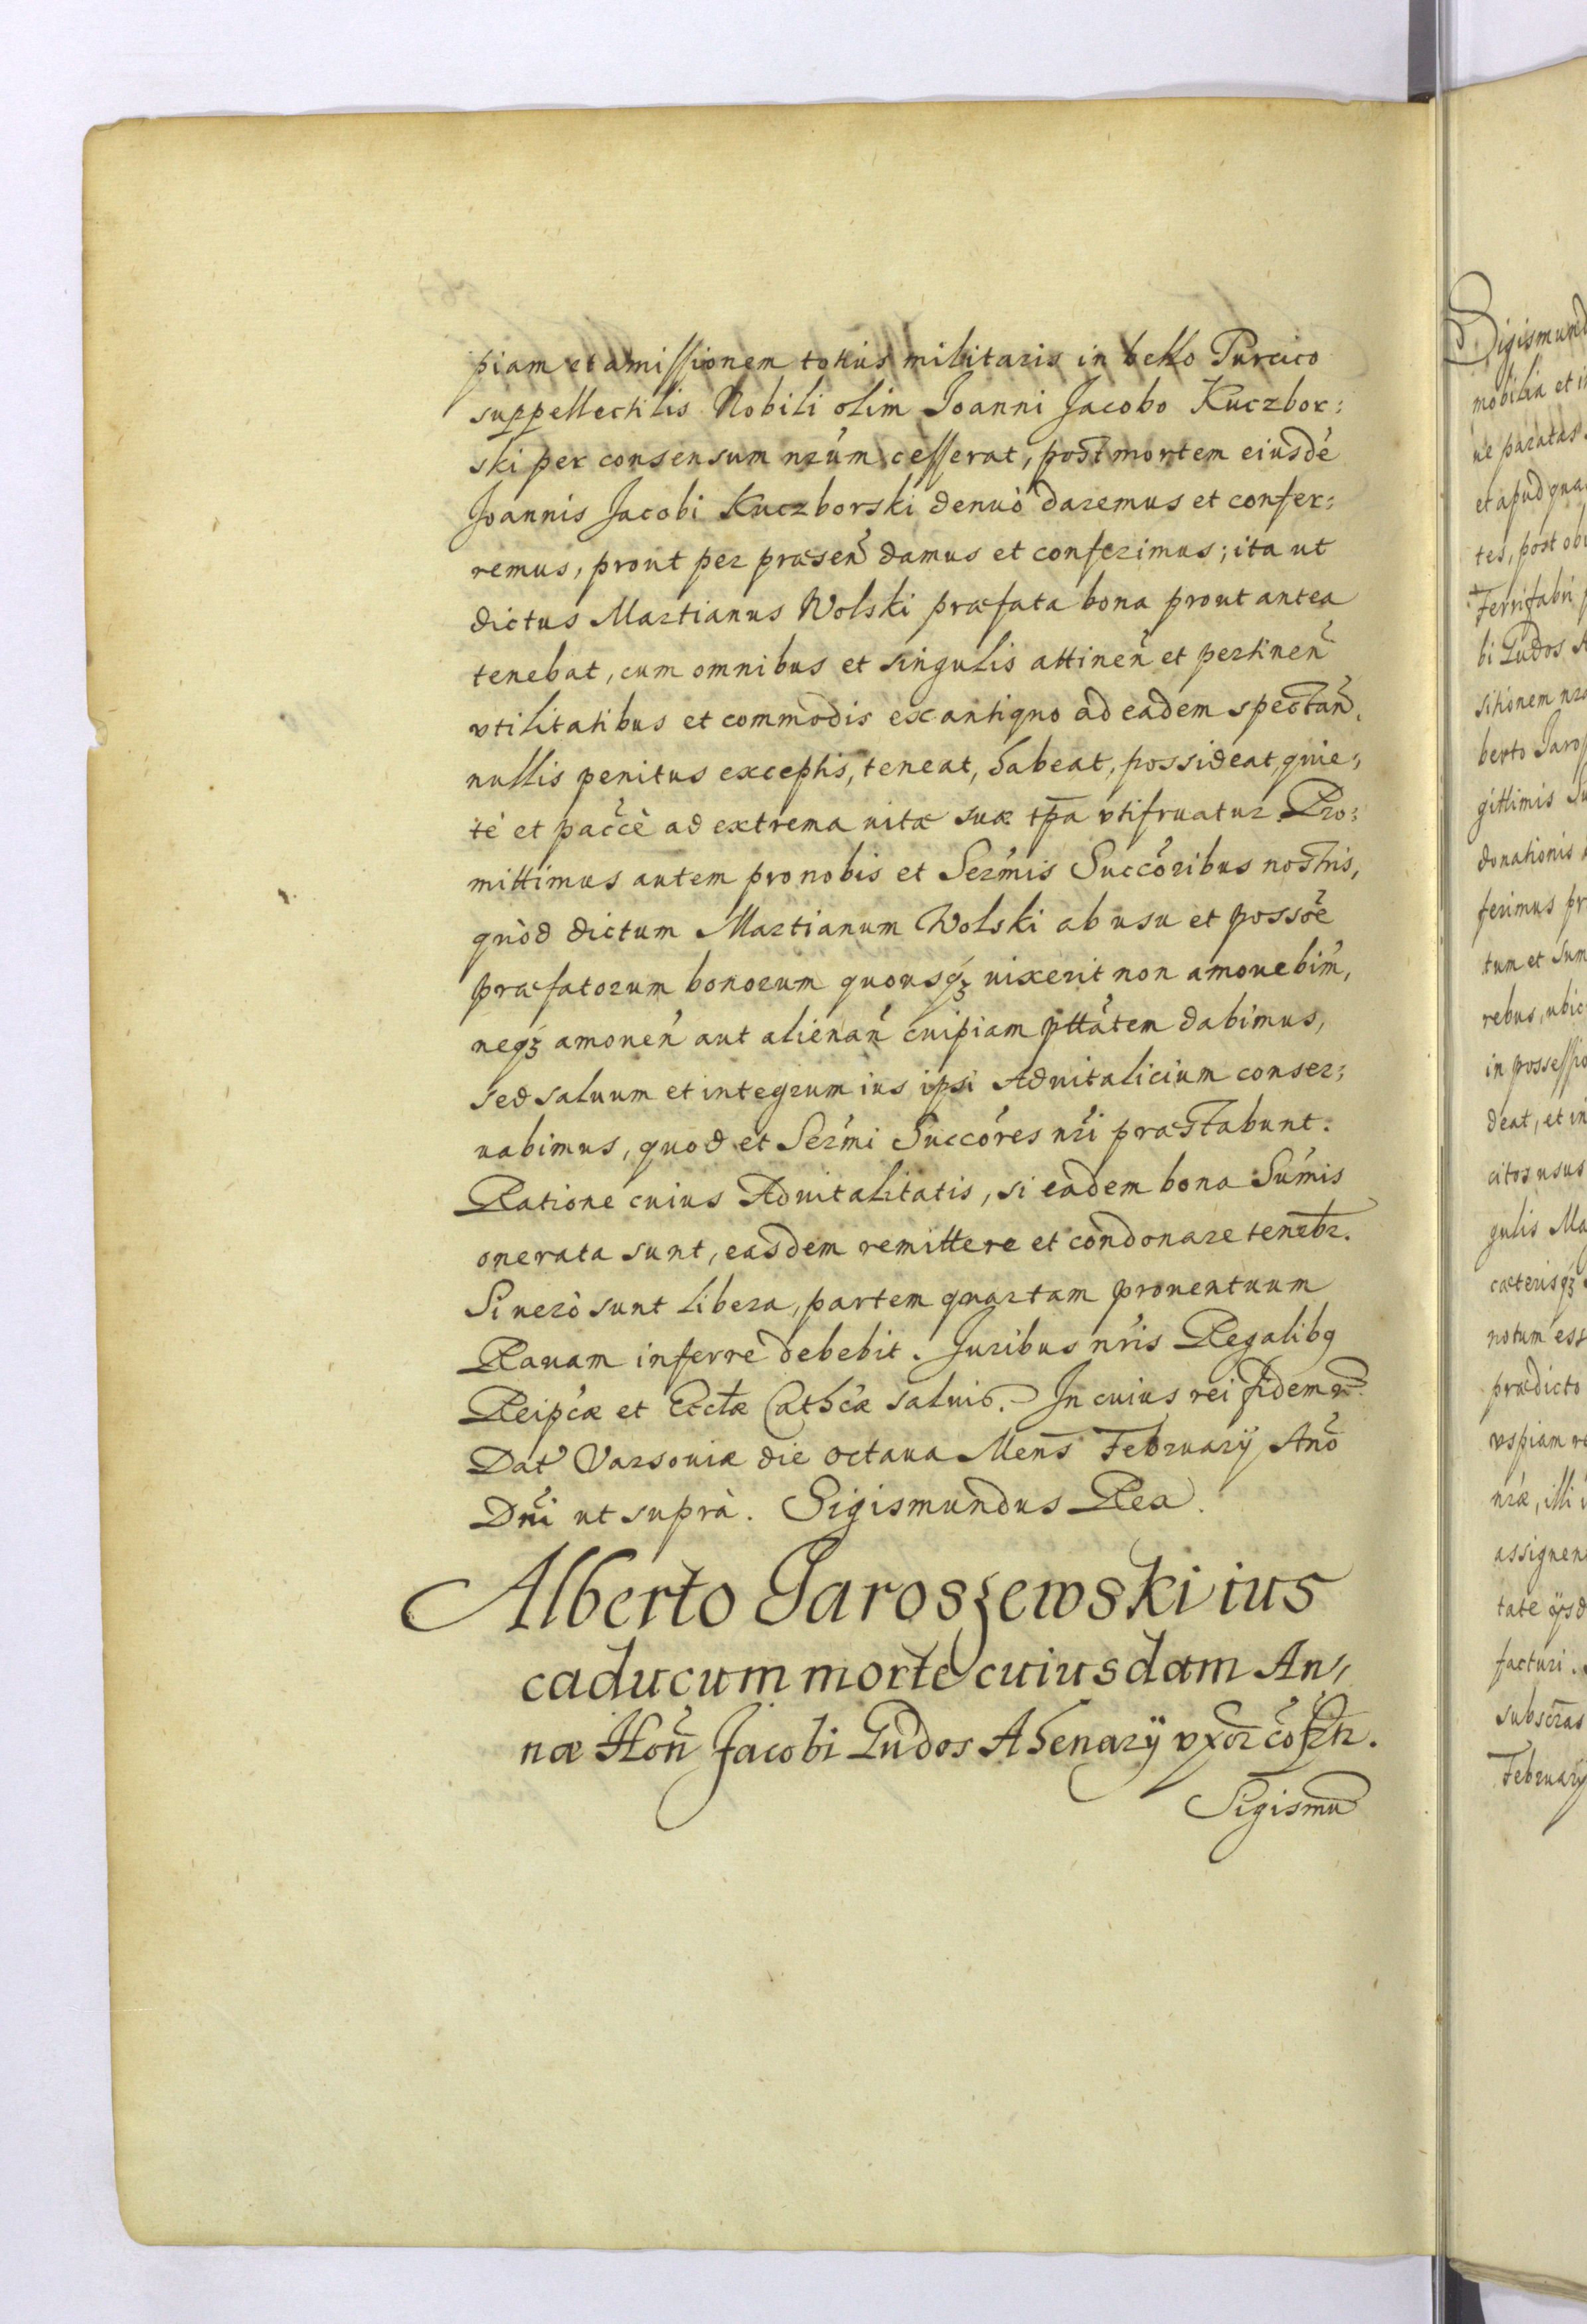 piam et amissionem totius militaris in bello Turcico
suppellectilis Nobili olim Joanni Jacobo Kuczbor:
ski per consensum nr̃um cesserat, post mortem eiusdẽ
Joannis Jacobi Kuczborski denuò daremus et confer:
remus, prout per præseñ damus et conferimus; ita ut
dictus Martianus Wolski præfata bona prout antea
tenebat, cum omnibus et singulis attineñ et pertineñ
vtilitatibus et commodis ex antiquo ad eadem spectañ.
nullis penitus exceptis, teneat, habeat, possideat, quie:
tè et pac̃cè ad extrema uitæ suæ tp̃a vtifruatur. Pro:
mittimus autem pro nobis et Ser̃mis Succõribus nostris,
quòd dictum Martianum Wolski ab usu et possõe
præfatorum bonorum quousq́ꝫ uixerit non amouebim̃,
neq́ꝫ amoueñ aut alienañ cuipiam ptt̃atem dabimus,
sed saluum et integrum ius ipsi Aduitalicium conser:
uabimus, quod et Ser̃mi Succõres nr̃i præstabunt.
Ratione cuius Aduitalitatis, si eadem bona Sum̃is
onerata sunt, easdem remittere et condonare teneb̃r.
Si uerò sunt libera, partem quartam prouentuum
Rauam inferre debebit. Juribus nr̃is Regalibꝯ
Reip̃cæ et Eccl̃æ Cath̃cæ saluis. In cuius rei fidem
Dat̃ Varsouiæ die octaua Mens̃ February Anõ
Dñi ut suprà. Sigismundus Rex.
Alberto Jaroszewski ius
caducum morte cuiusdam An:
næ Hoñ Jacobi Ludos Ahenarÿ vxor̃ cõfr̃tr.
Sigismũ
Sigismund
mobilia et i
ue paratas
et apud qua
tes, post obi
Ferrifabri p
bi Ludos A
sitionem nr̃
berto Jaros
gittimis Su
donationis
ferimus pr
tum et Sum
rebus, ubic
in possessio
deat, et in
citos usus
gulis Ma
cæterisq́ꝫ
notum ess
prædicto
vspiam re
nr̃æ, illi i
assignen
tate ijsd
facturi.
subscr̃as
February